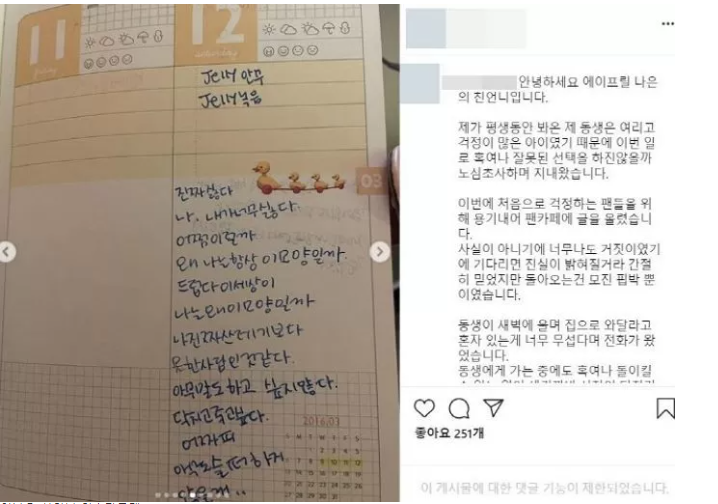 11
12
saturday
Jelly 안무
Jelly 녹음
03
진짜 싫다
나. 내가 너무 싫다.
어쩜 이럴까
왜 나는 항상 이모양일까.
드럽다 이세상이
나는 왜 이모양일까
나 진짜 쓰레기보다
못한사람인것같다.
아무말도 하고 싶지않다.
닥치고 죽고싶다.
어차피
2016/03
S M T W T F S
안녕하세요 에이프릴 나은
의 친언니입니다.
제가 평생동안 봐온 제 동생은 여리고
걱정이 많은 아이였기 때문에 이번 일
로 혹여나 잘못된 선택을 하진않을까
노심초사하며 지내왔습니다.
이번에 처음으로 걱정하는 팬들을 위
해 용기내어 팬카페에 글을 올렸습니
다.
사실이 아니기에 너무나도 거짓이였기
에 기다리면 진실이 밝혀질거라 간절
히 믿었지만 돌아오는건 모진 핍박 뿐
이였습니다.
동생이 새벽에 울며 집으로 와달라고
혼자 있는게 너무 무섭다며 전화가 왔
었습니다.
동생에게 가는 중에도 혹여나 돌이킬
좋아요 251개
이 게시물에 대한 댓글 기능이 제한되었습니다.